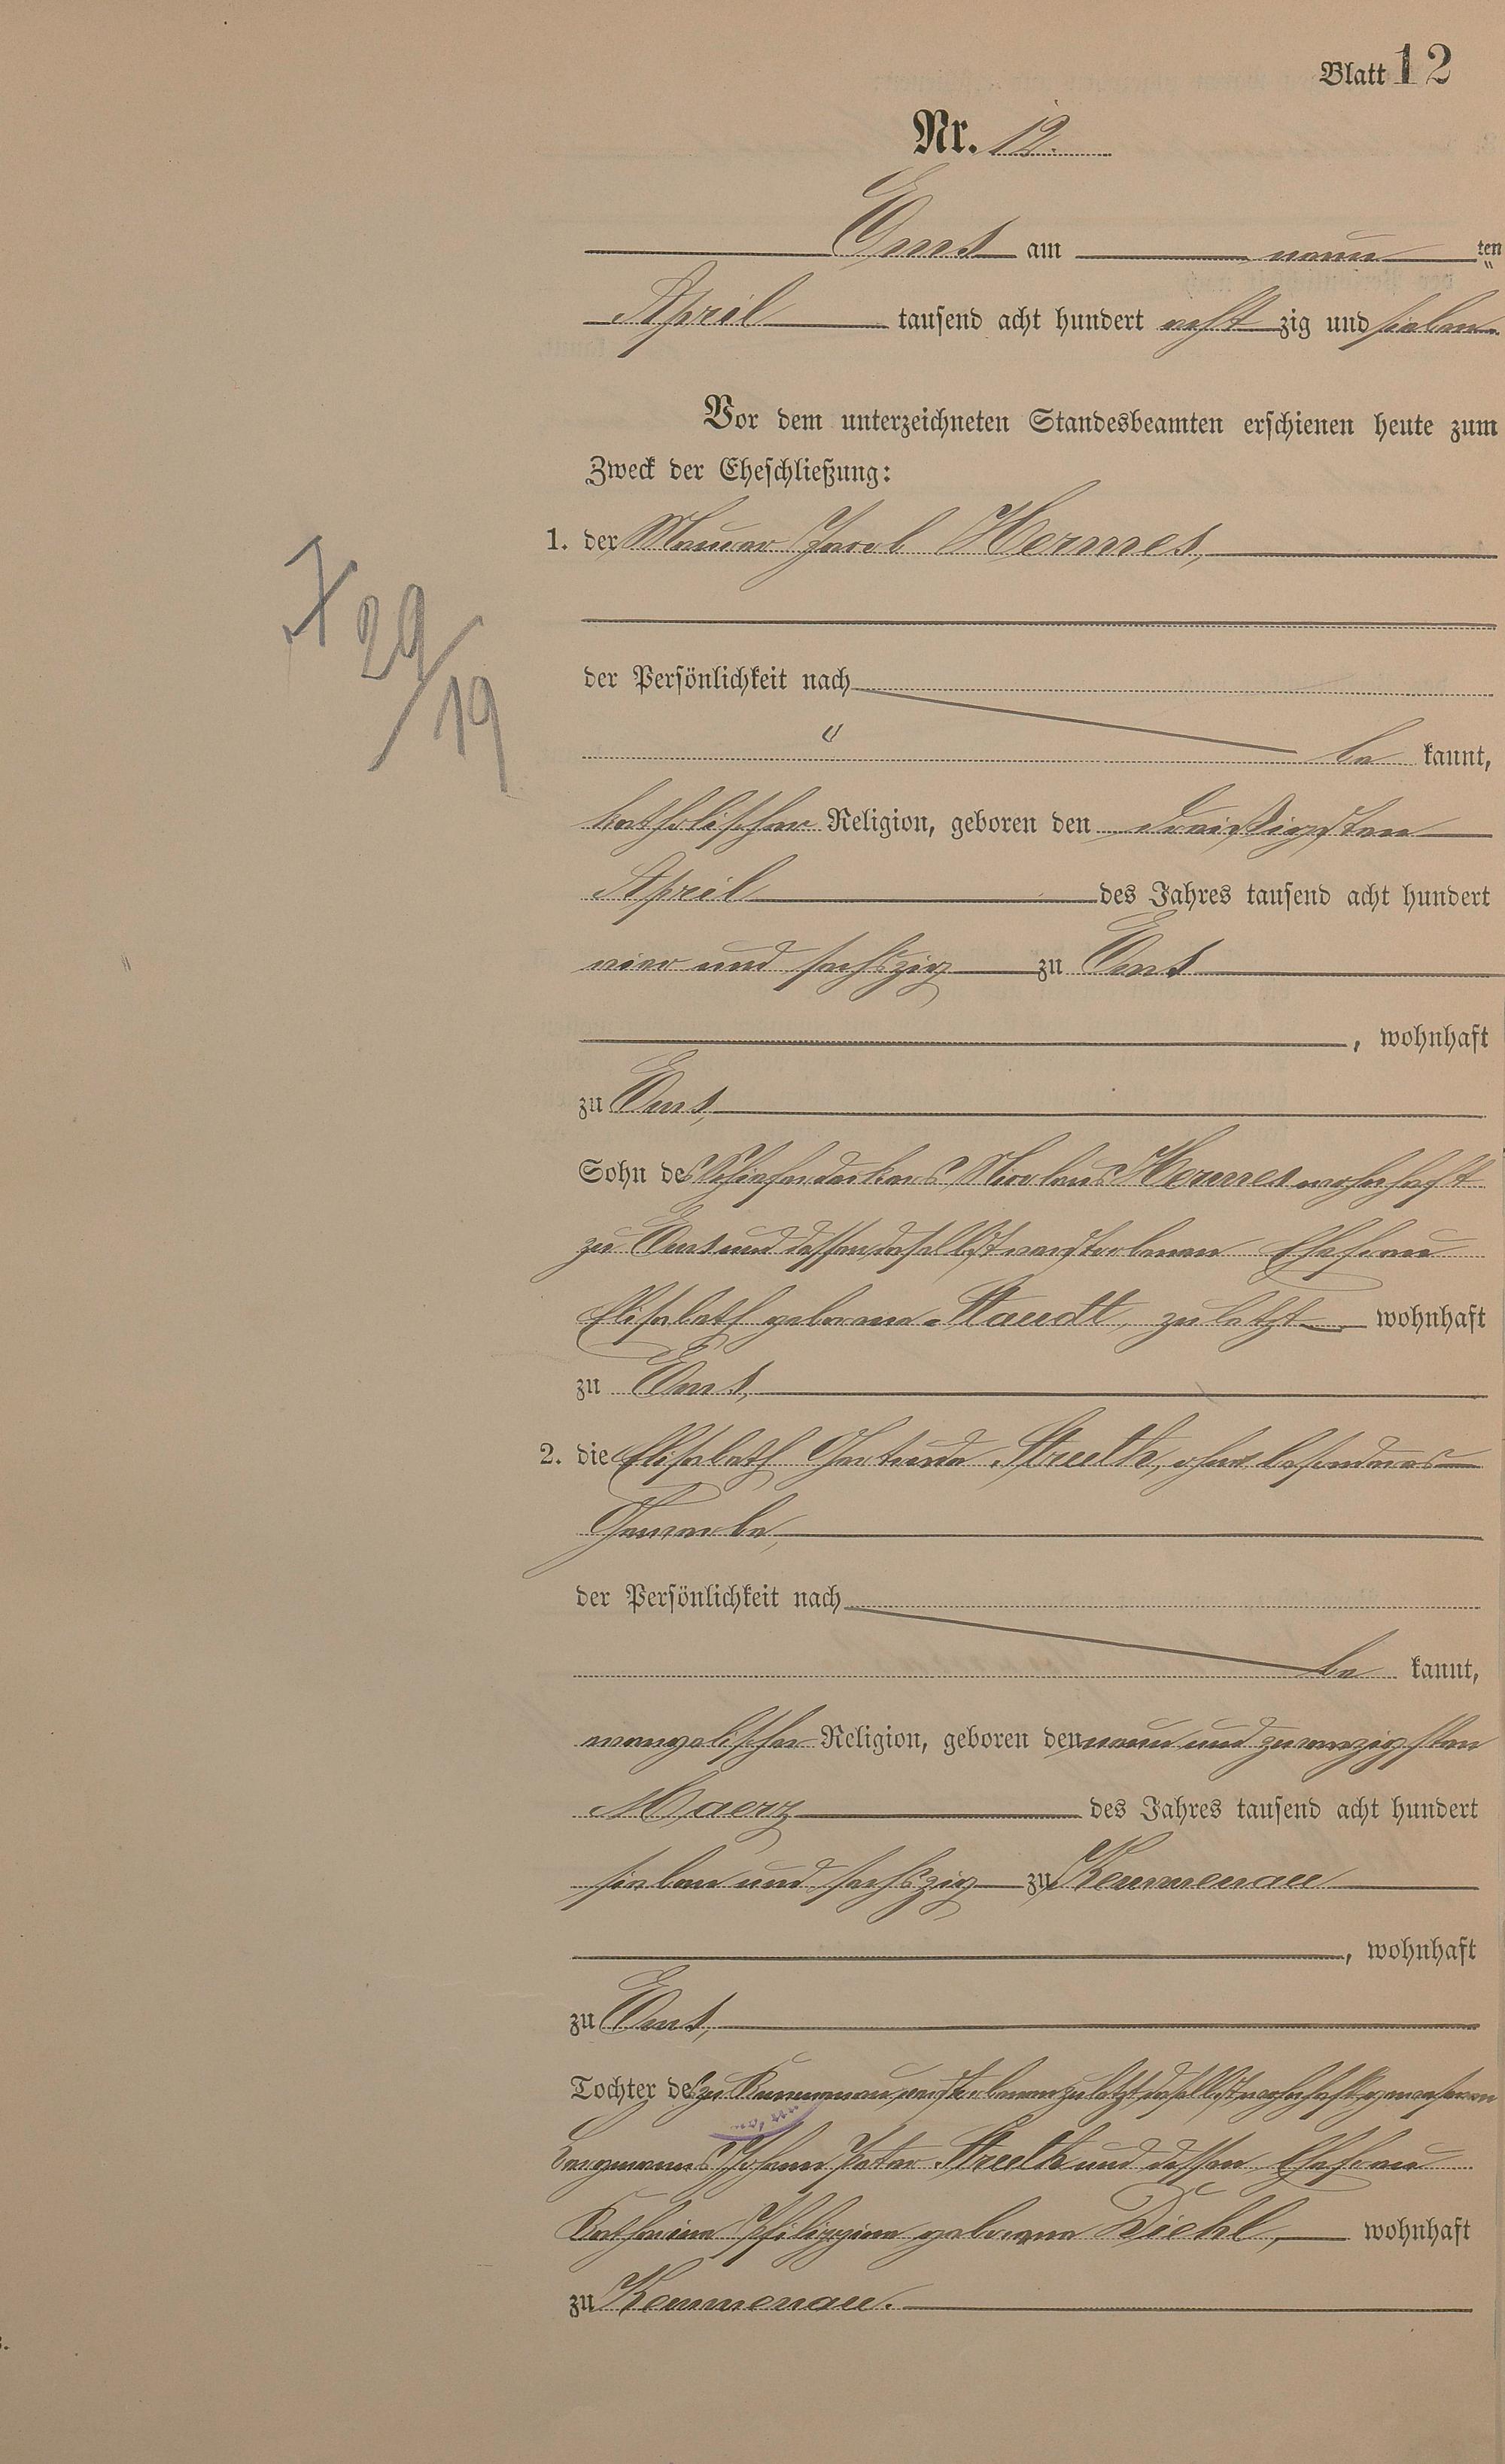 Blatt 12
Nr. 12.
Ems am neun ten
April tausend acht hundert acht zig und sieben
Vor dem unterzeichneten Standesbeamten erschienen heute zum
Zweck der Eheschließung:
1. der Maurer Jacob Hermes,
der Persönlichkeit nach
be kannt,
katholischer Religion, geboren den dreißigsten
April des Jahres tausend acht hundert
vier und sechszig zu Ems
, wohnhaft
zu Ems,
Sohn des Schieferdeckers Nicolaus Hermes wohnhaft
zu Ems und dessen daselbst verstorbenen Ehefrau
Elisabeth geborene Staudt, zuletzt wohnhaft
zu Ems,
2. die Elisabeth Gertrude Streeth, ohne besonderes
Gewerbe,
der Persönlichkeit nach
be kannt,
evangelischer Religion, geboren den neun und zwanzigsten
Maerz des Jahres tausend acht hundert
sieben und sechszig zu Kemmenau
, wohnhaft
zu Ems,
Tochter des zu Kemmenau verstorbenen zuletzt daselbst wohnhaft gewesenen
Bergmanns Johann Peter Streeth und dessen Ehefrau
Katharine Philippine geborene Diehl, wohnhaft
zu Kemmenau.
29/19